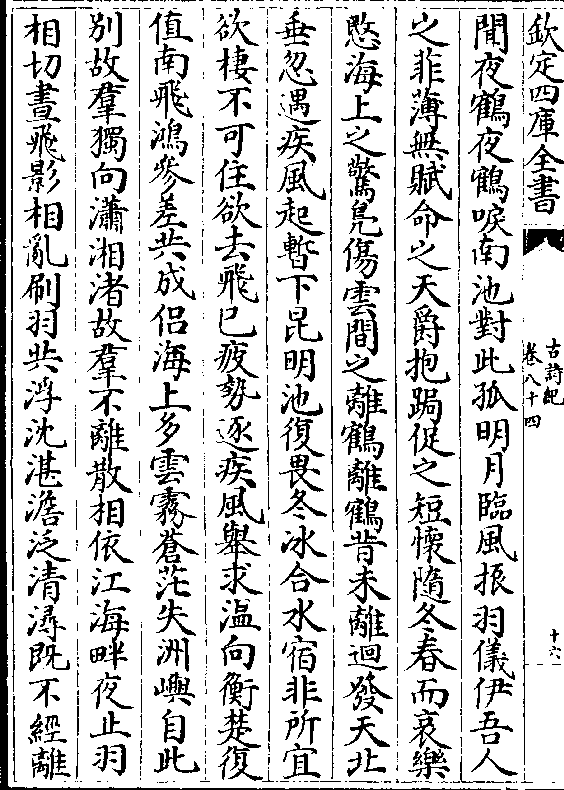 欽定四庫全書
古詩紀
卷八十四
十六
聞夜鶴夜鶴唳南池對此孤明月臨風振羽儀伊吾人
之菲薄無賦命之天爵抱跼促之短懷隨冬春而哀樂
愍海上之驚凫傷雲間之離鶴離鶴昔未離迥發天北
垂忽遇疾風起暫下昆明池復畏冬冰合水宿非所宜
欲棲不可住欲去飛已疲勢逐疾風舉求溫向衡楚復
值南飛鴻參差共成侣海上多雲霧蒼茫失洲嶼自此
别故羣獨向瀟湘渚故羣不離散相依江海畔夜止羽
相切晝飛影相亂刷羽共浮沈湛澹泛清潯既不經離